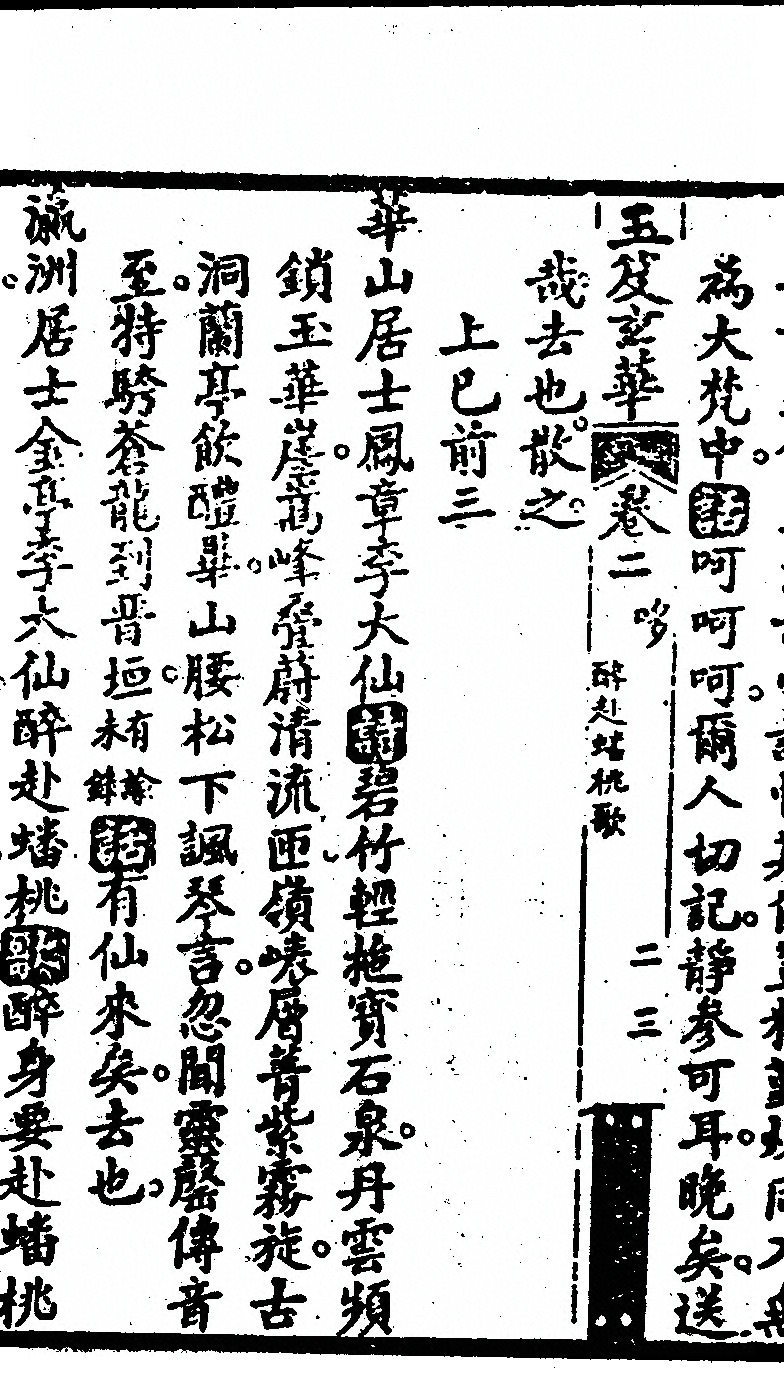 為大梵中詩呵呵呵爾人切記靜參可耳晚矣送
玉笈玄華
卷二
哆
醉赴蟠桃歌
二三
哉去也散之
上巳前三
華山居士鳳章李大仙詩碧竹輕拖寶石泉丹雲頻
鎖玉華崖嵩峰疊蔚清流匝嶺嶁層菁紫霧旋古
洞蘭亭飲醴畢山腰松下諷琴言忽聞靈磬傳音
至特騎蒼龍到普垣未有餘詩有仙來矣去也
瀛洲居士金亭李大仙醉赴蟠桃歌醉身要赴蟠桃